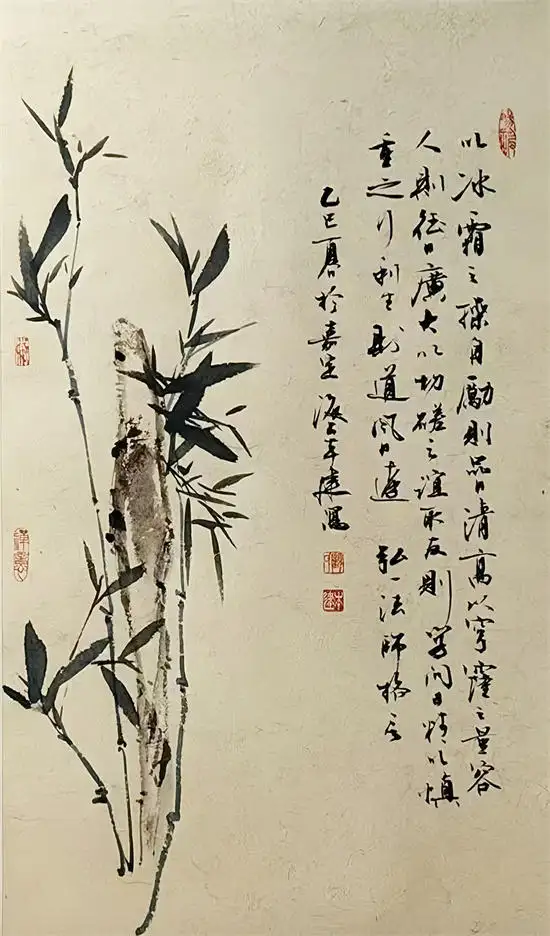 以冰霜之操自勵則品日清高以穹窿之量容
人則德日廣大以切磋之誼取友則學問日精以慎
重之行利生則道風日遠 弘一法師格言
乙巳夏於嘉定